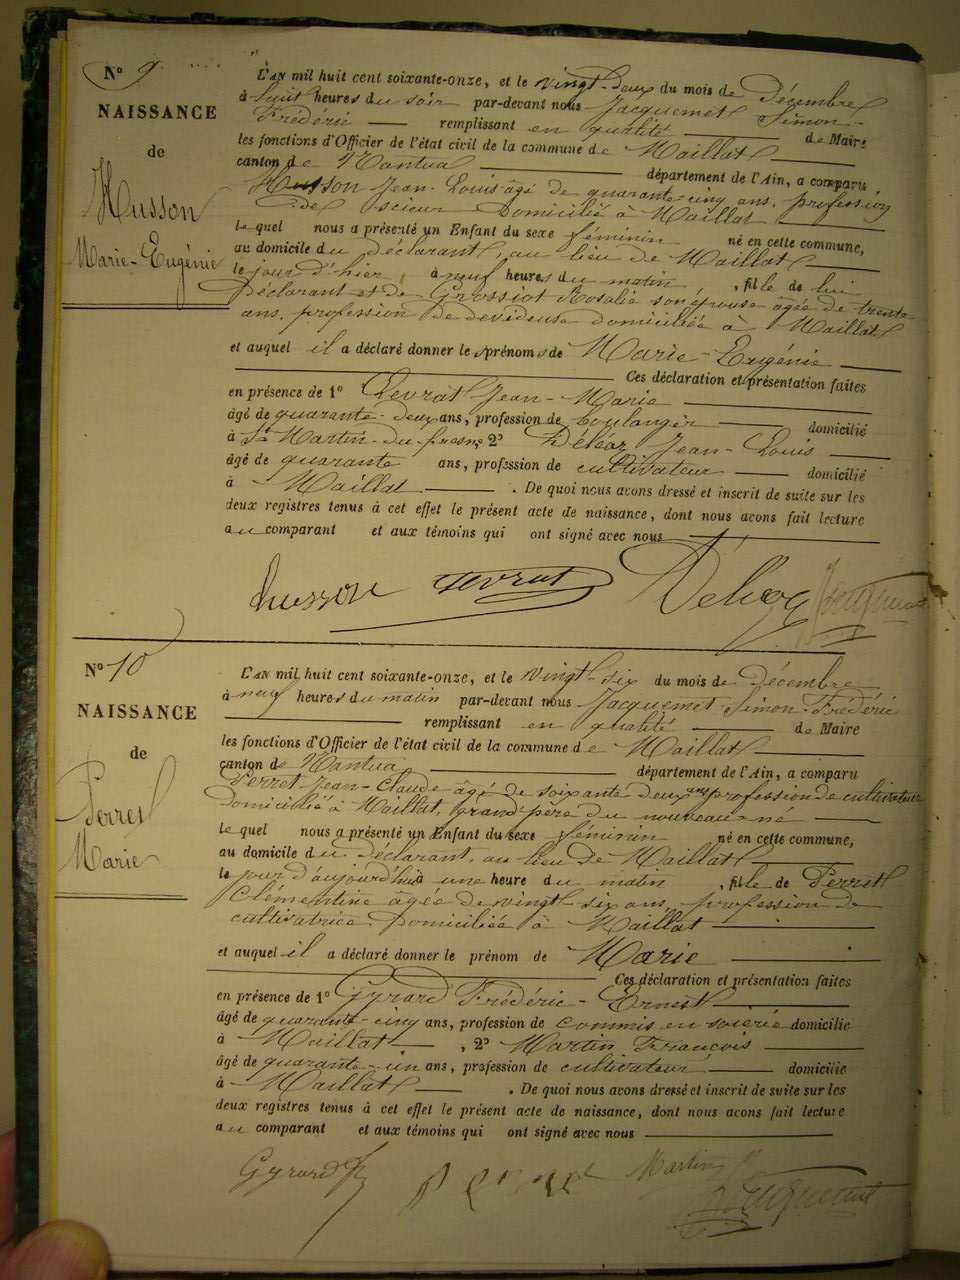 N° 9
NAISSANCE
de
Husson
Marie-Eugénie
L'AN mil huit cent soixante-onze, et le vingt-deux du mois de Décembre
à huit heures du soir par-devant nous Jacquemet Simon-
Frédéric remplissant en qualité de Maire
les fonctions d'Officier de l'état civil de la commune de Maillat
canton de Nantua département de l'Ain, a comparu
Husson Jean-Louis âgé de quarante-cinq ans, profession
de scieur Domicilié à Maillat
lequel nous a présenté un Enfant du sexe féminin né en cette commune,
au domicile du déclarant, au lieu de Maillat
le jour d'hier, à neuf heures du matin, fille de lui
Déclarant et de Grossiot Rosalie son épouse âgée de trente
ans, profession de devideuse domiciliée à Maillat
et auquel il a déclaré donner les prénoms de Marie-Eugénie
Ces déclaration et présentation faites
en présence de 1° Chevrat Jean-Marie
âgé de quarante-deux ans, profession de boulanger domicilié
à St Martin-du-fresne 2° Jean-Louis
âgé de quarante ans, profession de cultivateur domicilié
à Maillat. De quoi nous avons dressé et inscrit de suite sur les
deux registres tenus à cet effet le présent acte de naissance, dont nous avons fait lecture
au comparant et aux témoins qui ont signé avec nous
husson
N° 10
NAISSANCE
de
Perret
Marie
L'AN mil huit cent soixante-onze, et le vingt-six du mois de Décembre
à neuf heures du matin par-devant nous Jacquemet Simon-Frédéric
remplissant en qualité de Maire
les fonctions d'Officier de l'état civil de la commune de Maillat
canton de Nantua département de l'Ain, a comparu
Perret Jean-Claude âgé de soixante deux ans profession de cultivateur
Domicilié à Maillat, grand père du nouveau né
lequel nous a présenté un Enfant du sexe féminin né en cette commune,
au domicile du Déclarant, au lieu de Maillat
le jour d'aujourd'hui à une heure du matin, fille de Perret
Clémentine âgée de vingt-six ans, profession de
cultivatrice Domiciliée à Maillat
et auquel il a déclaré donner le prénom de Marie
Ces déclaration et présentation faites
en présence de 1° Gyrard Frédéric-Ernest
âgé de quarante-cinq ans, profession de commis en soierie domicilié
à Maillat, 2° Martin François
âgé de quarante-un ans, profession de cultivateur domicilié
à Maillat. De quoi nous avons dressé et inscrit de suite sur les
deux registres tenus à cet effet le présent acte de naissance, dont nous avons fait lecture
au comparant et aux témoins qui ont signé avec nous
Gyrard Martin
Jacquemet